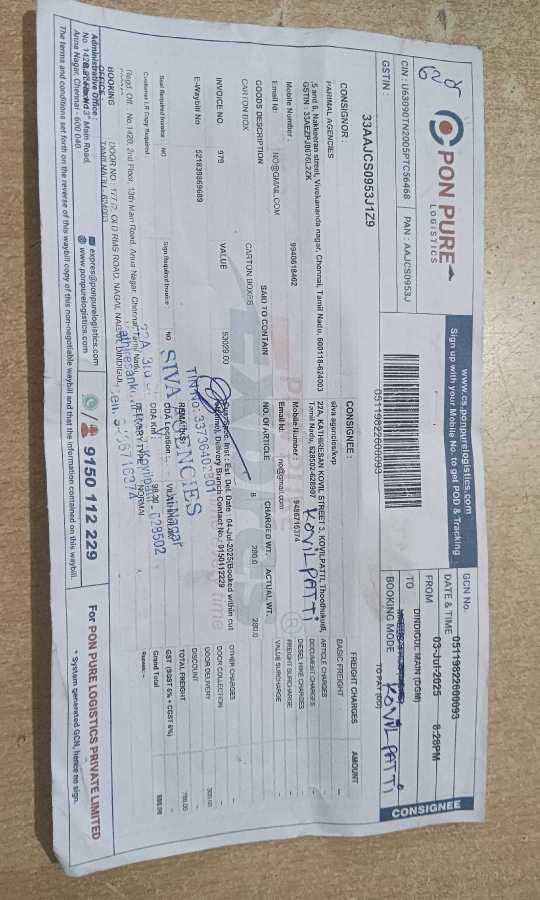 PON PURE
LOGISTICS
www.cs.ponpurelogistics.com
Sign up with your Mobile No. to get POD & Tracking
CONSIGNEE
CIN : U63090TN2005PTC56468
PAN : AAJCS0953J
GSTIN :
33AAJCS0953J1Z9
051198226000093
GCN No. 051198226000093
DATE & TIME 03-Jul-2025 8:28PM
FROM DINDIGUL MAIN (DGM)
TO KOVILPATTI
BOOKING MODE TO PAY (DD)
CONSIGNOR :
PARIMAL AGENCIES
5 and 6, Nakkeeran street, Vivekananda nagar, Chennai, Tamil Nadu, 600118-624003
Mobile Number : 9940618462
Email Id: NO@GMAIL.COM
CONSIGNEE :
siva agencies/kvp
22A, KATHIRESAN KOVIL STREET 3, KOVILPATTI, Thoothukudi,
Tamil Nadu, 628502-628907
KOVILPATTI
Mobile Number : 9486716374
Email Id: no@gmail.com
FREIGHT CHARGES AMOUNT
BASIC FREIGHT -
ARTICLE CHARGES -
DOCUMENT CHARGES
DIESEL HIKE CHARGES
FREIGHT SURCHARGE
VALUE SURCHARGE -
OTHER CHARGES -
DOOR COLLECTION -
DOOR DELIVERY 300.00
DISCOUNT -
TOTAL FREIGHT
GST (SGST 6% + CGST 6%) -
Grand Total
Rupees :-
GOODS DESCRIPTION SAID TO CONTAIN NO. OF ARTICLE CHARGED WT. ACTUAL WT.
CARTON BOX CARTON BOXES 8 280.0 280.0
INVOICE NO 979
VALUE 53029.00
E-Waybill No 521839889689
Seal Required Invoice : NO
Sign Required Invoice NO
Customer LR Copy Required
Est. Del. Date : 04-Jul-2025(Booked within cut
Delivery Branch Contact No.: 9150112229
REMARKS
DDA Location :
DDA KM
DELIVERY NORMAL
SIVA AGENCIES
22A, 3rd
628502
Regd. Off. : No.1420, 2nd Floor, 13th Main Road, Anna Nagar, Chennai, Tamil Nadu
BOOKING
OFFICE
OLD RMS ROAD, NAGAL NAGAR, DINDIGUL,
TAMIL NADU, 624003
Administrative Office :
Main Road,
Anna Nagar, Chennai - 600 040.
expres@ponpurelogistics.com
www.ponpurelogistics.com
9150 112 229
For PON PURE LOGISTICS PRIVATE LIMITED
The terms and conditions set forth on the reverse of this waybill copy of this non-negotiable waybill and that the information contained on this waybill.
* System generated GCN, hence no sign.